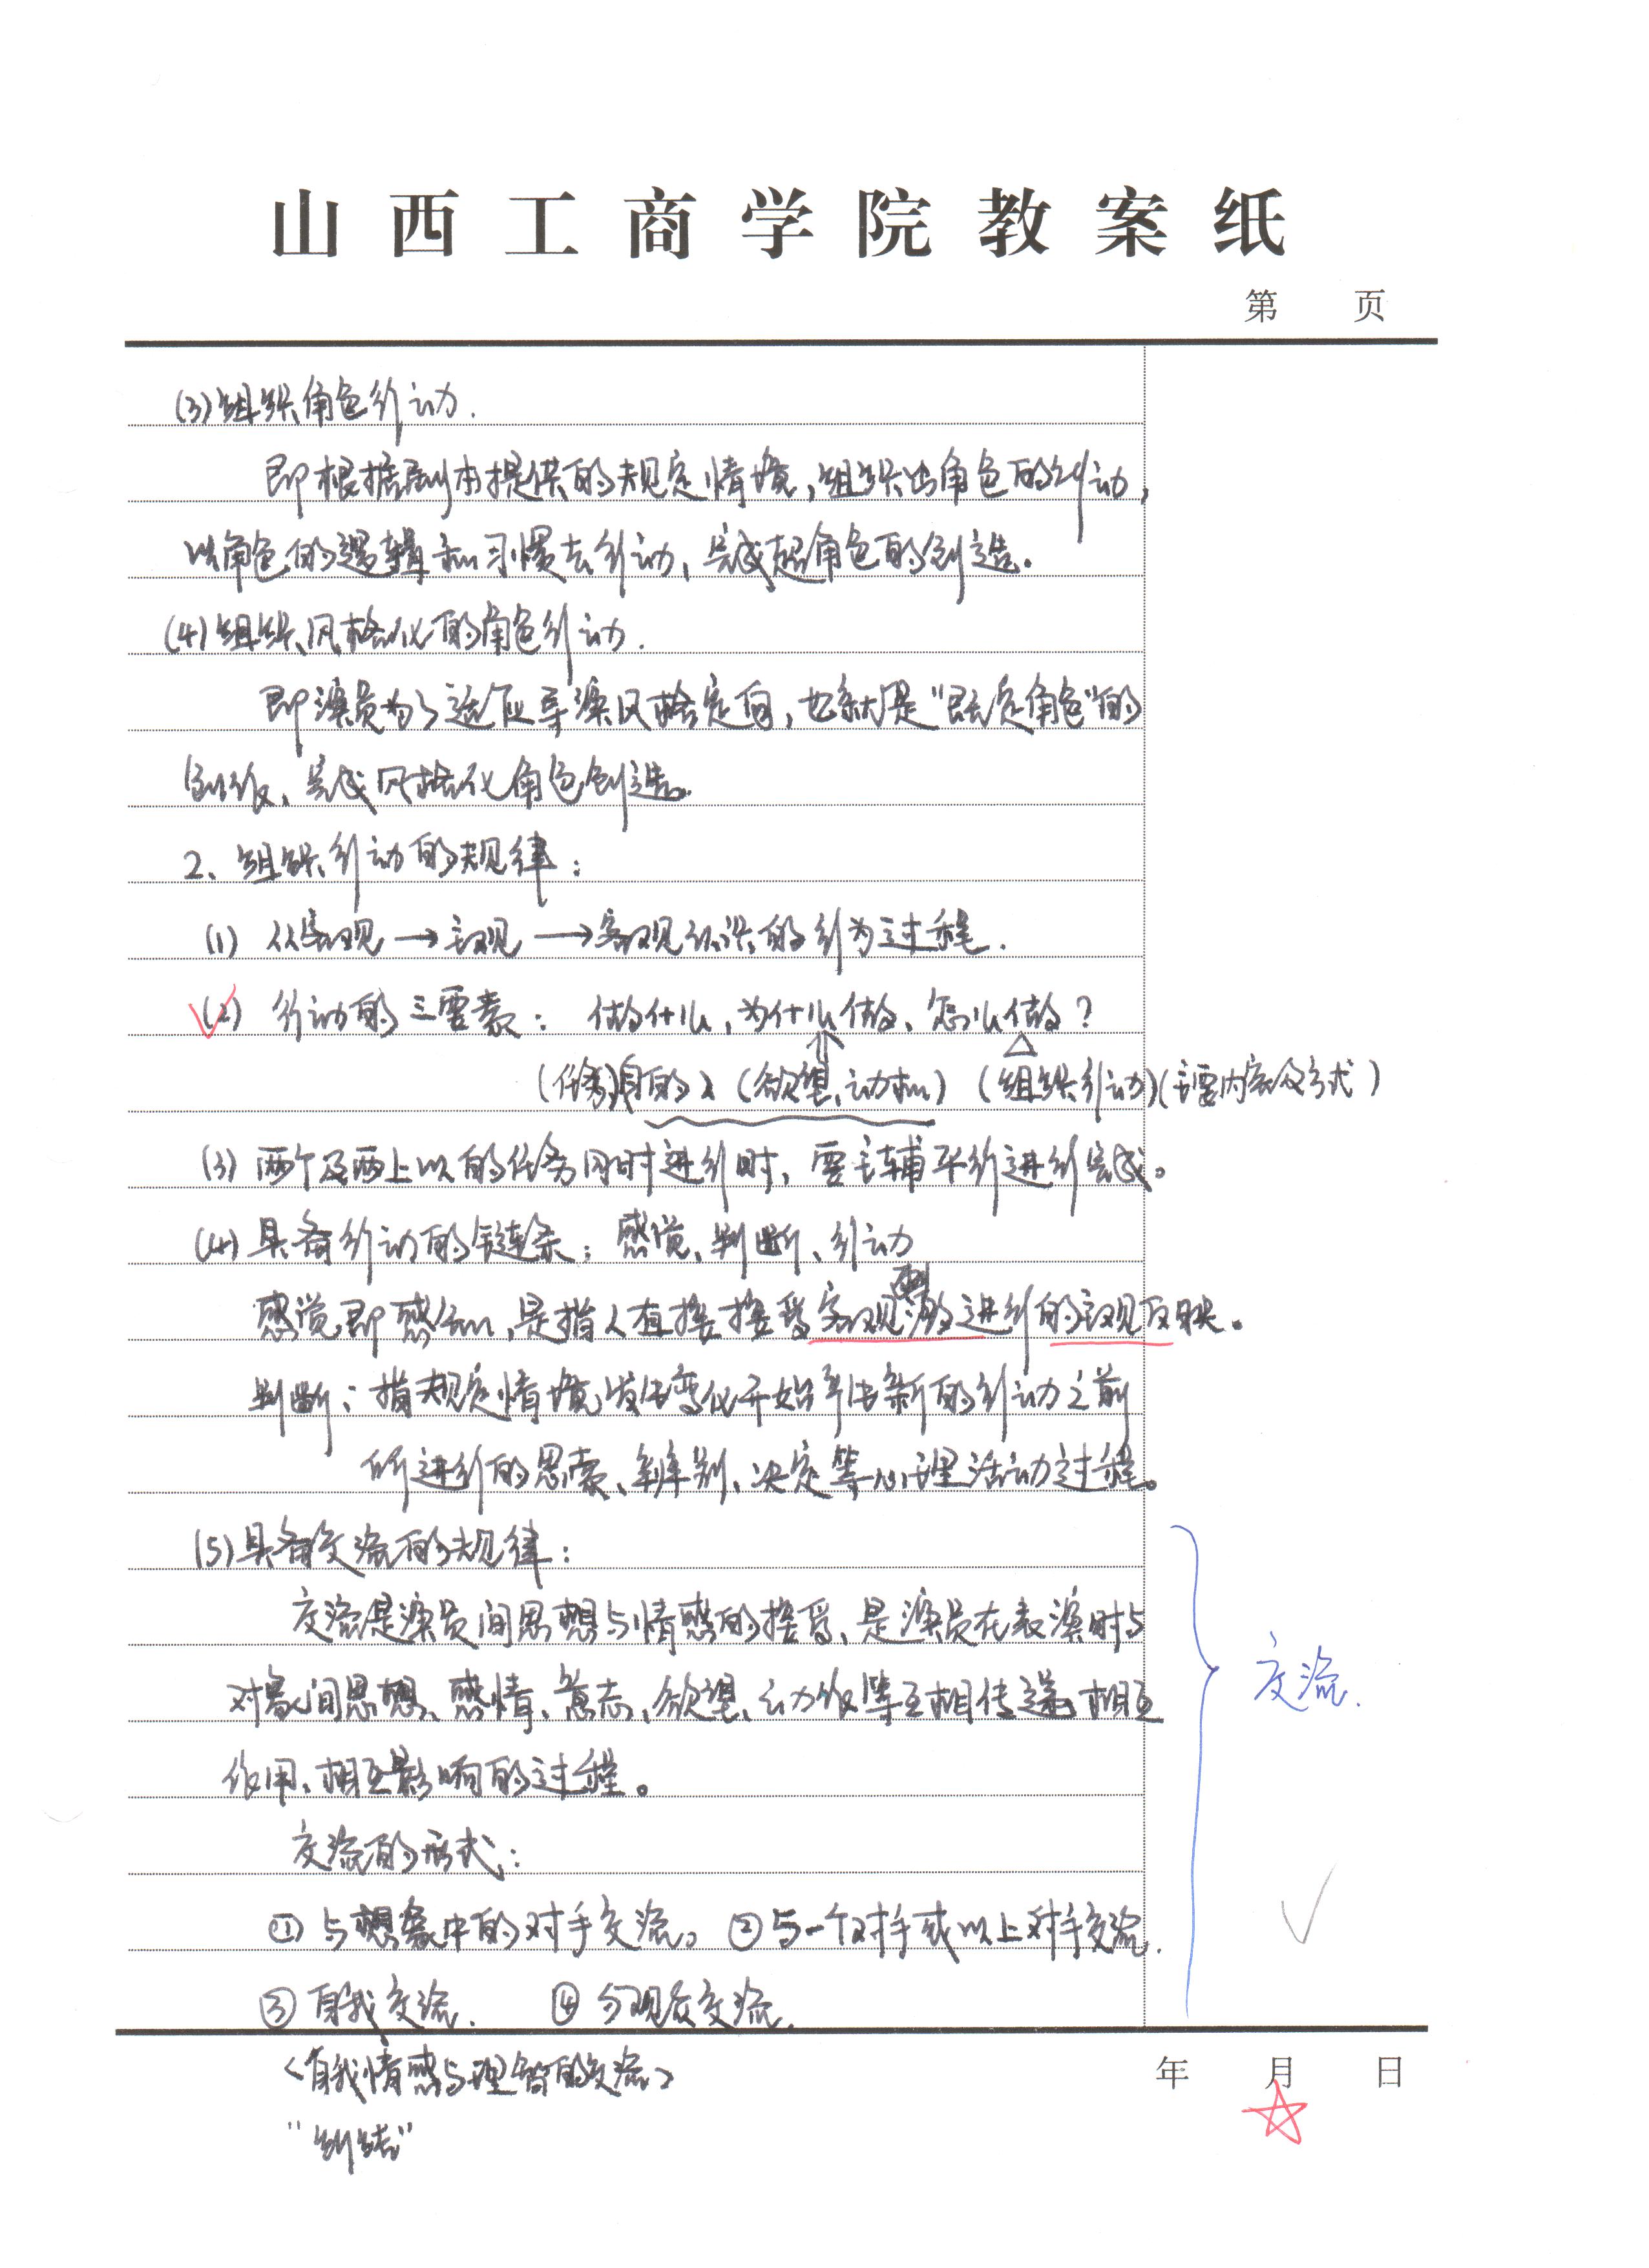 山西工商学院教案纸
第 页
(3)组织角色行动.
即根据剧本提供的规定情境,组织出角色的行动,
以角色的逻辑和习惯去行动,完成起角色的创造。
(4)组织风格化的角色行动.
即演员为了适应导演风格定向,也就是"既定角色"的
创作,完成风格化角色创造。
2、组织行动的规律:
(1) 从客观→主观→客观认识的行为过程.
(2) 行动的三要素: 做什么,为什么做、怎么做?
(任务)目的 (欲望、动机) (组织行动)(主要内容及方式)
(3) 两个及两上以的任务同时进行时,要主辅平行进行完成。
(4) 具备行动的链条:感觉、判断、行动
感觉即感知,是指人直接接受客观刺激进行的主观反映。
判断:指规定情境发生变化开始产生新的行动之前
所进行的思索、辨别、决定等心理活动过程。
(5)具备交流的规律:
交流是演员间思想与情感的接受、是演员在表演时与
对象间思想、感情、意志、欲望、动作等互相传递,相互
作用、相互影响的过程。
交流.
交流的形式:
① 与想象中的对手交流。 ② 与一个对手或以上对手交流.
③ 自我交流. ④ 与观众交流.
<自我情感与理智的交流>
年 月 日
"纠结"